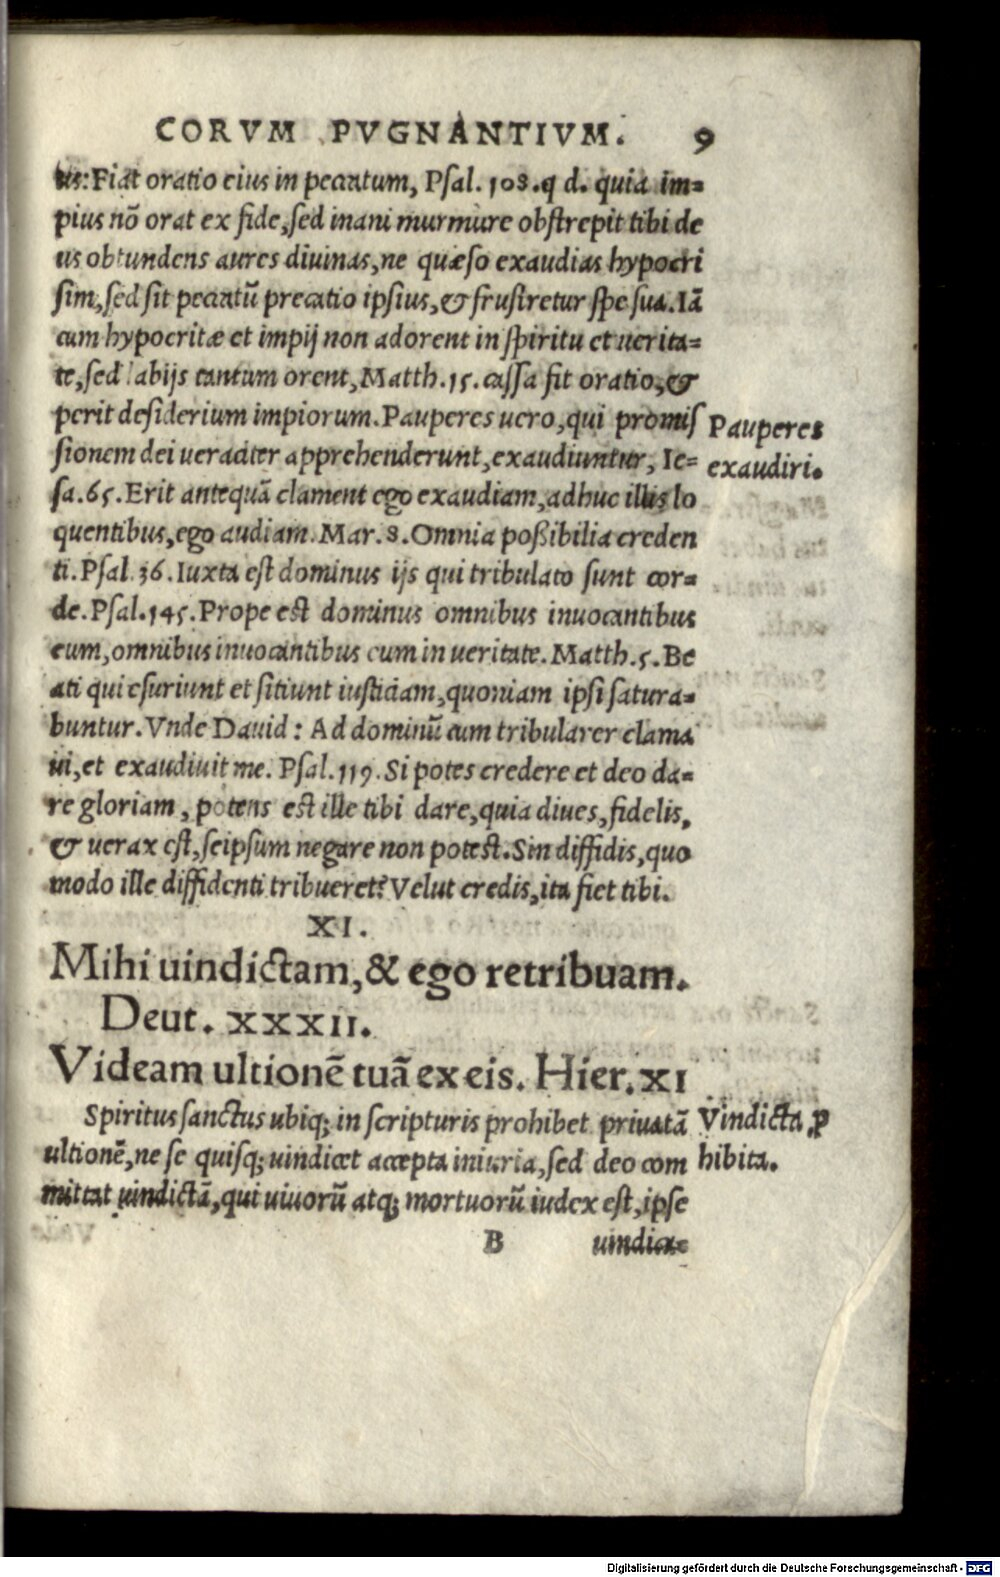 CORVM PVGNANTIVM. 9
tis: Fiat oratio eius in peccatum, Psal. 108. q d. quia im=
pius nō orat ex fide, sed inani murmure obstrepit tibi de
us obtundens aures diuinas, ne quæso exaudias hypocri
sim, sed sit peccatū precatio ipsius, & frustretur spe sua. Iā
cum hypocritæ et impij non adorent in spiritu et uerita=
te, sed labijs tantum orent, Matth. 15. cassa fit oratio, &
perit desiderium impiorum. Pauperes uero, qui promis
sionem dei ueraciter apprehenderunt, exaudiuntur, Ie=
sa. 65. Erit antequā clament ego exaudiam, adhuc illis lo
quentibus, ego audiam. Mar. 8. Omnia poßibilia creden
ti. Psal. 36. Iuxta est dominus ijs qui tribulato sunt cor=
de. Psal. 145. Prope est dominus omnibus inuocantibus
eum, omnibus inuocantibus eum in ueritate. Matth. 5. Be
ati qui esuriunt et sitiunt iusticiam, quoniam ipsi satura=
buntur. Vnde Dauid: Ad dominū cum tribularer clama
ui, et exaudiuit me. Psal. 119. Si potes credere et deo da=
re gloriam, potens est ille tibi dare, quia diues, fidelis,
& uerax est, seipsum negare non potest. Sin diffidis, quo
modo ille diffidenti tribueret? Velut credis, ita fiet tibi.
Pauperes
exaudiri.
XI.
Mihi uindictam, & ego retribuam.
Deut. XXXII.
Videam ultionē tuā ex eis. Hier. XI
Spiritus sanctus ubiq; in scripturis prohibet priuatā
ultionē, ne se quisq; uindicet accepta iniuria, sed deo com
mittat uindictā, qui uiuorū atq; mortuorū iudex est, ipse
Vindicta ꝓ
hibita.
B uindica=
Digitalisierung gefördert durch die Deutsche Forschungsgemeinschaft - DFG